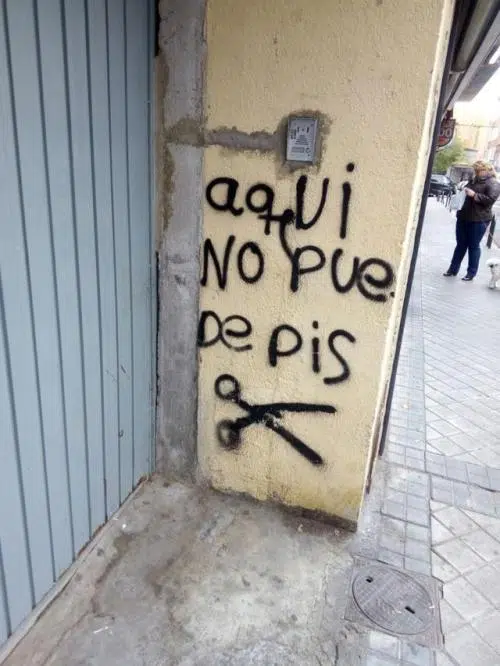 aquí
NO pue.
De pis